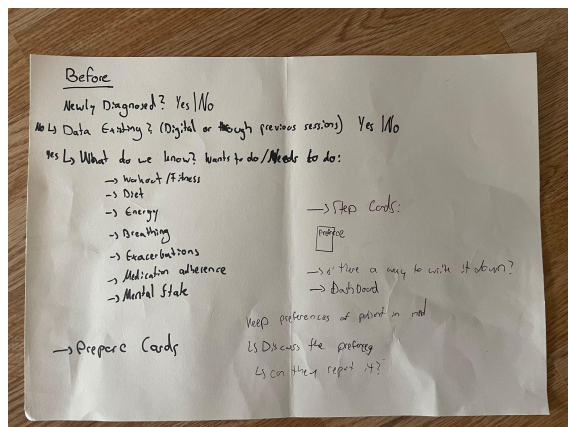 Before
Newly Diagnosed? Yes | No
No ↳ Data Existing? (Digital or through previous sessions) Yes | No
Yes ↳ What do we know? Wants to do / Needs to do:
→ Workout / Fitness
→ Diet
→ Energy
→ Breathing
→ Exacerbations
→ Medication adherence
→ Mental State
→ Prepare Cards
→ Step Cards:
→ there a way to write it down?
→ Dashboard
Keep preferences of patient in mind
↳ Discuss the
↳ can they repeat it?